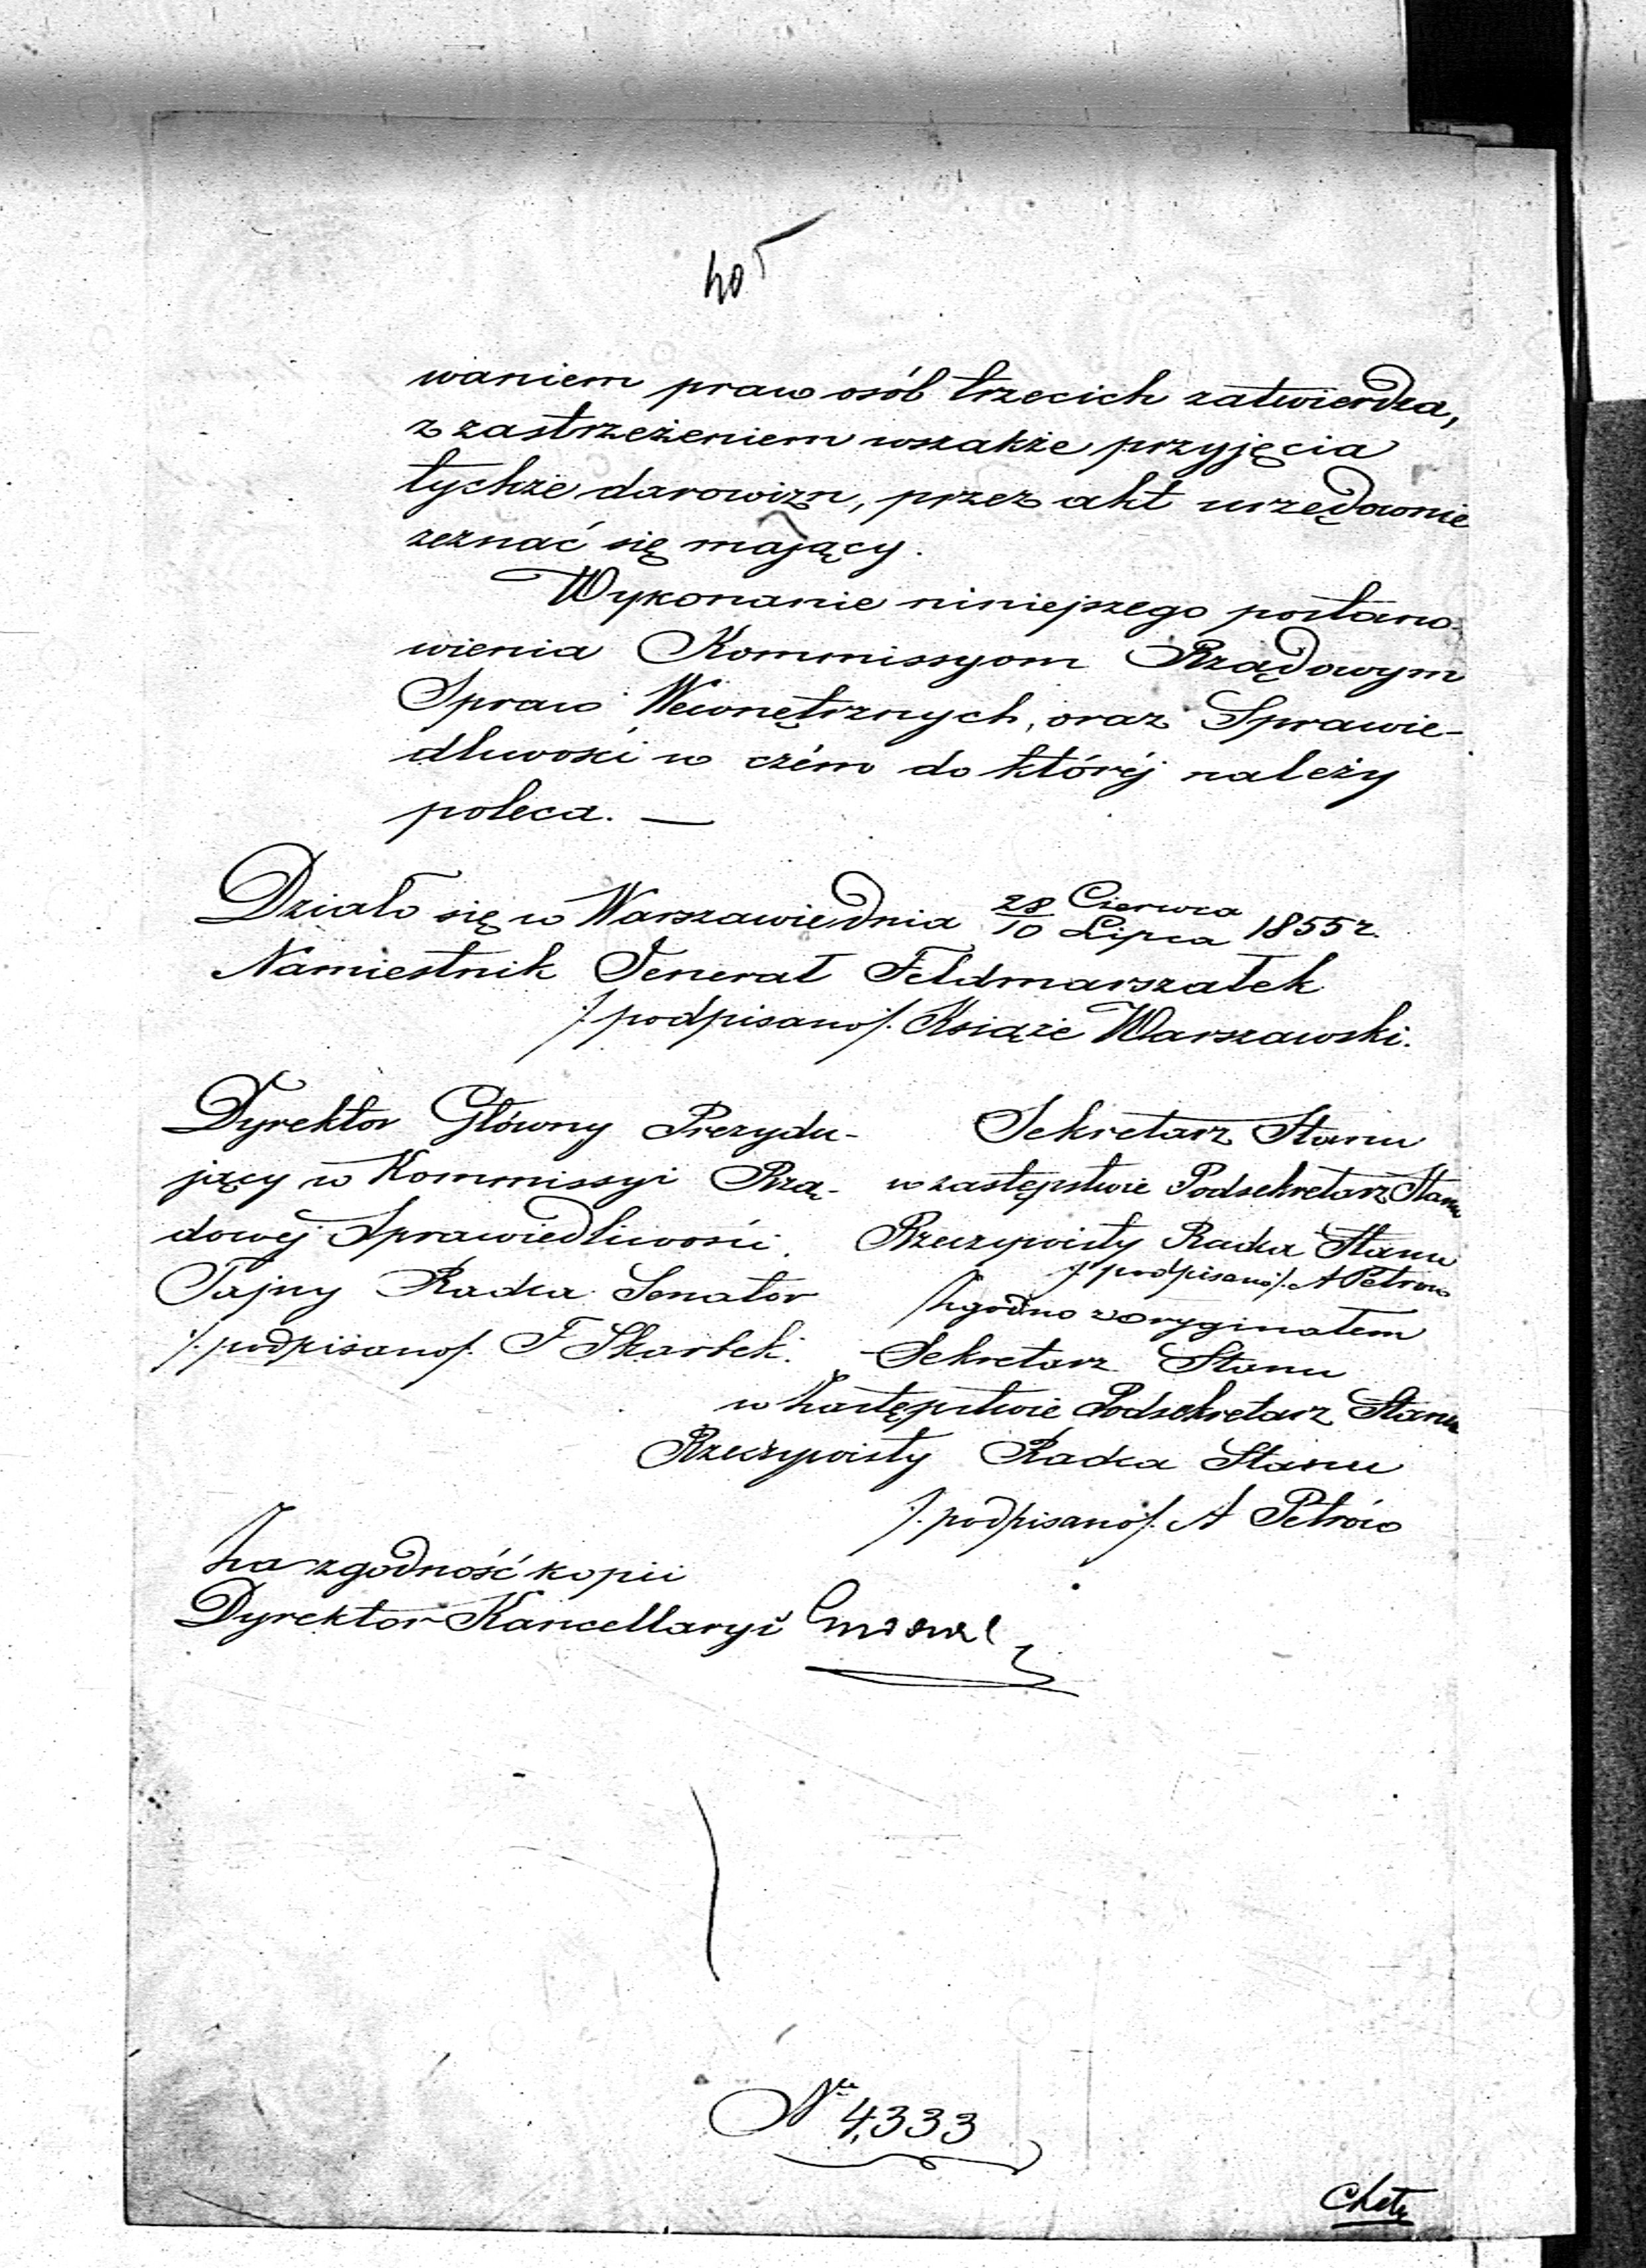 405
waniem praw osób trzecich zatwierdza,
z zastrzeżeniem wszakże przyjęcia
tychże darowizn, przez akt urzędownie
zeznać się mający.
Wykonanie niniejszego postano-
wienia Kommissyom Rządowym
Spraw Wewnętrznych, oraz Sprawie-
dliwości w czém do któréj należy
poleca. —
Działo się w Warszawie dnia 28 Czerwca / 10 Lipca 1855 r.
Namiestnik Jenerał Feldmarszałek
/. podpisano /. Książe Warszawski.
Dyrektor Główny Prezydu-
jący w Kommissyi Rzą-
dowej Sprawiedliwości.
Tajny Radca Senator
/. podpisano /. F Skarbek.
Sekretarz Stanu
w zastępstwie Podsekretarz Stanu
Rzeczywisty Radca Stanu
/. podpisano /. A Petrow
Zgodno z oryginałem
Sekretarz Stanu
w Zastępstwie Podsekretarz Stanu
Rzeczywisty Radca Stanu
/. podpisano /. A Petrów
Za zgodność kopii
Dyrektor Kancellaryi
№ 4,333